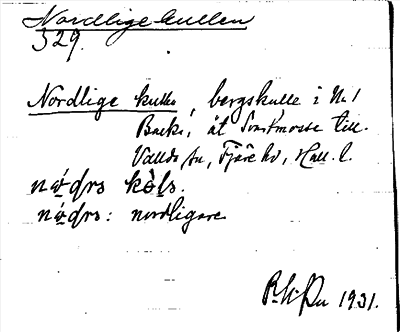 Nordlige kullen
329.
Nordlige kulle, bergskulle i N:1
Backe, åt Svartmosse till.
Vallda sn, Fjäre hd, Hall. l.
nǫ́drs kòls.
nǫ́drs: nordligare
1931.